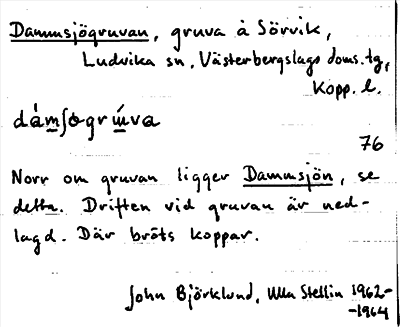 Dammsjögruvan, gruva å Sörvik,
Ludvika sn, Västerbergslags doms.tg,
Kopp. l.
dám̲ʃogrḿ̲va
76
Norr om gruvan ligger Dammsjön, se
detta. Driften vid gruvan är ned-
lagd. Där bröts koppar.
John Björklund, Ulla Stellin 1962-
-1964